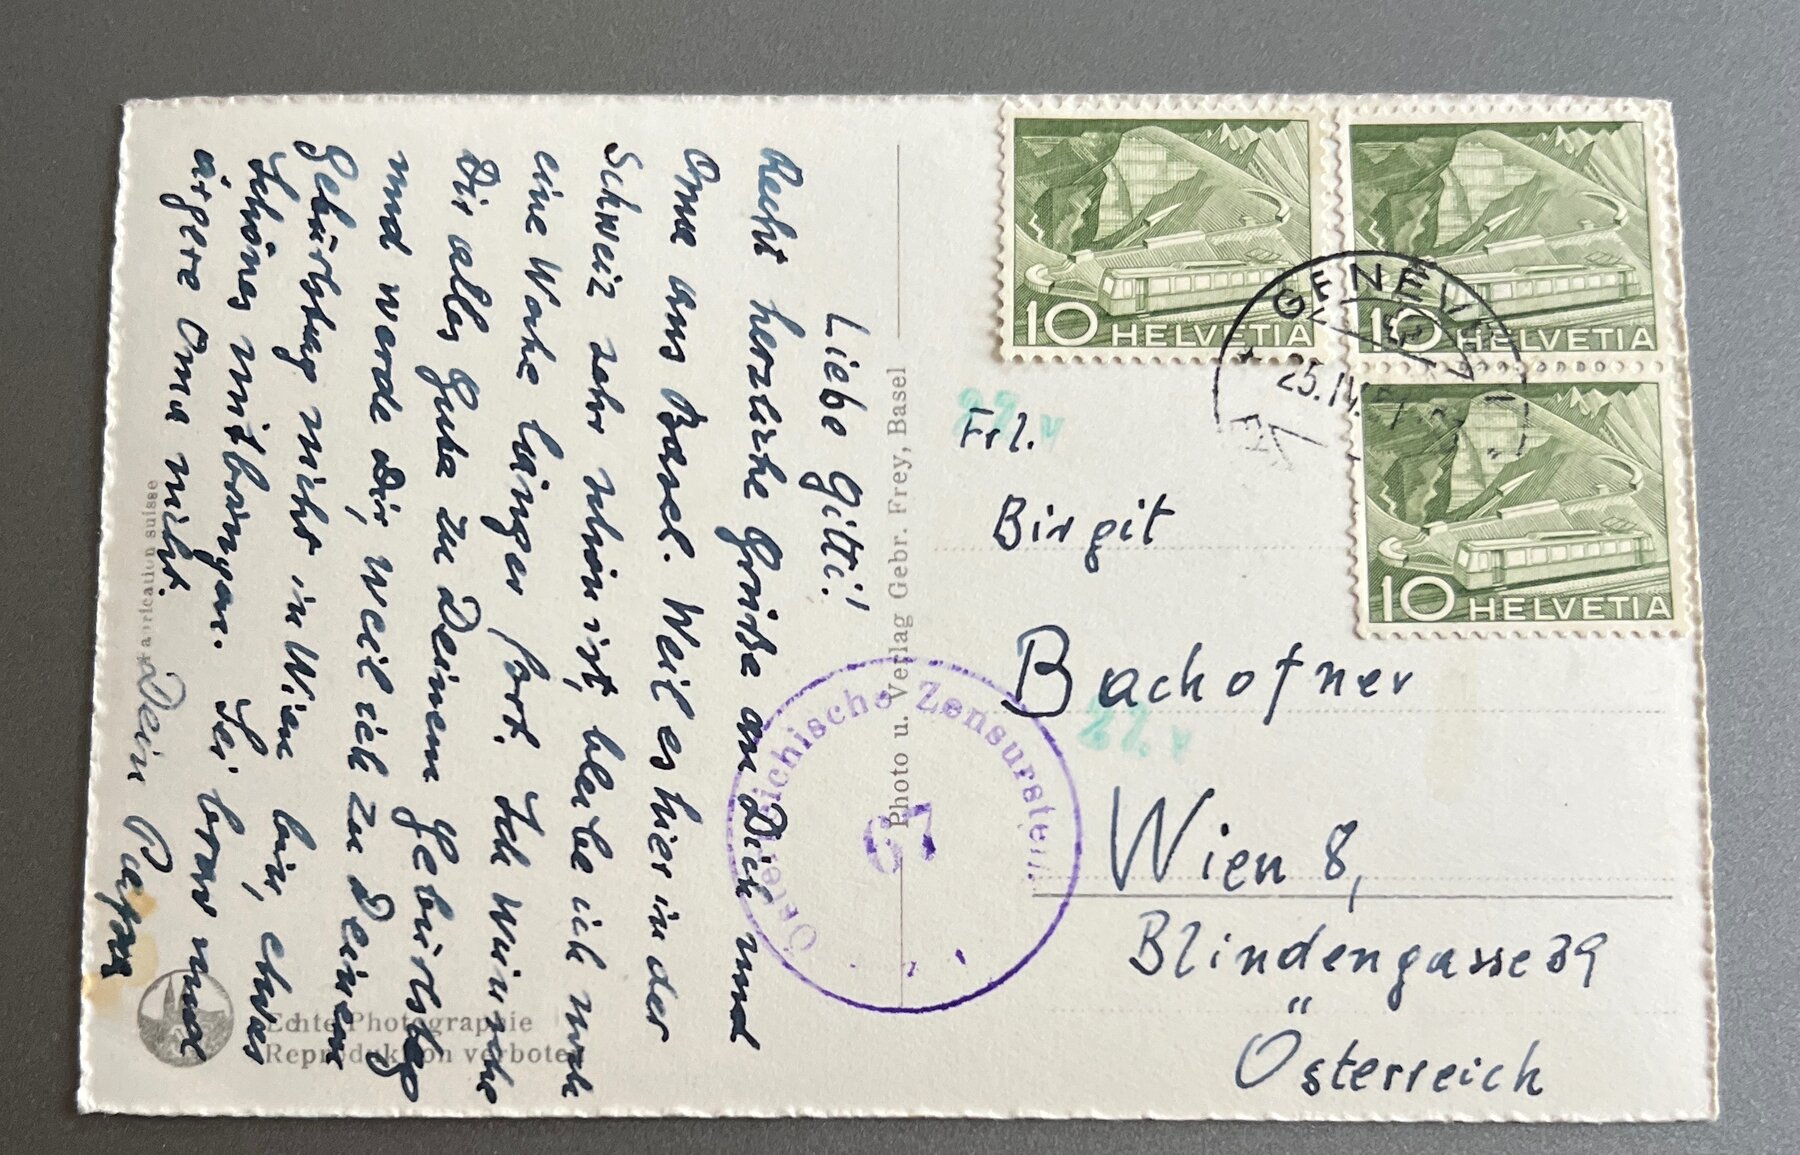 Liebe Gitti!
Recht herzliche Grüße an Dich und
Oma aus Basel. Weil es hier in der
Schweiz sehr schön ist, bleibe ich noch
eine Woche länger fort. Ich wünsche
Dir alles Gute zu Deinem Geburtstag
und werde Dir, weil ich zu Deinem
Geburtstag nicht in Wien bin, etwas
Schönes mitbringen. Sei brav und
ärgere Oma nicht.
Dein Papa
Photo u. Verlag Gebr. Frey, Basel
Echte Photographie
Reproduktion verboten
suisse
10 HELVETIA
10 HELVETIA
10 HELVETIA
GENEV
25.IV.
Österreichische Zensurstelle
Frl.
Birgit
Bachofner
Wien 8,
Blindengasse 39
Österreich